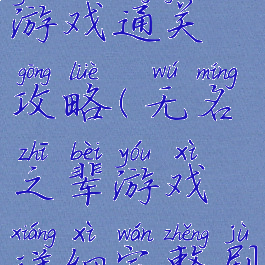 游戏通关
gōng lüè wú míng
攻略(无名
zhī bèi yóu xì
之辈游戏
xiáng xì wán zhěng jù
详细完整剧